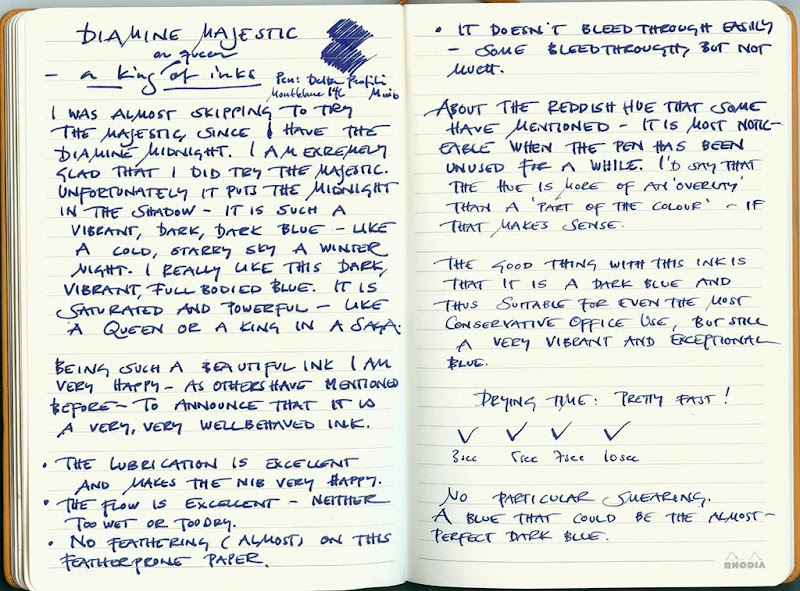 DIAMINE MAJESTIC
or queen
- a king of inks
Pen: Delta Profili
Montblanc 146 Mini6
I WAS ALMOST SKIPPING TO TRY
THE MAJESTIC, SINCE I HAVE THE
DIAMINE MIDNIGHT. I AM EXREMELY
GLAD THAT I DID TRY THE MAJESTIC.
UNFORTUNATELY IT PUTS THE MIDNIGHT
IN THE SHADOW - IT IS SUCH A
VIBRANT, DARK, DARK BLUE - LIKE
A COLD, STARRY SKY A WINTER
NIGHT. I REALLY LIKE THIS DARK,
VIBRANT, FULL BODIED BLUE. IT IS
SATURATED AND POWERFUL - LIKE
A QUEEN OR A KING IN A SAGA.
BEING SUCH A BEAUTIFUL INK I AM
VERY HAPPY - AS OTHERS HAVE MENTIONED
BEFORE - TO ANNOUNCE THAT IT IS
A VERY, VERY WELLBEHAVED INK.
• THE LUBRICATION IS EXCELLENT
AND MAKES THE NIB VERY HAPPY.
• THE FLOW IS EXCELLENT - NEITHER
TOO WET OR TOO DRY.
• NO FEATHERING (ALMOST) ON THIS
FEATHERPRONE PAPER.
• IT DOESN'T BLEED THROUGH EASILY
- SOME BLEEDTHROUGH, BUT NOT
MUCH.
ABOUT THE REDDISH HUE THAT SOME
HAVE MENTIONED - IT IS MOST NOTIC-
EABLE WHEN THE PEN HAS BEEN
UNUSED FOR A WHILE. I'D SAY THAT
THE HUE IS MORE OF AN 'OVERLAY'
THAN A 'PART OF THE COLOUR' - IF
THAT MAKES SENSE.
THE GOOD THING WITH THIS INK IS
THAT IT IS A DARK BLUE AND
THUS SUITABLE FOR EVEN THE MOST
CONSERVATIVE OFFICE USE, BUT STILL
A VERY VIBRANT AND EXCEPTIONAL
BLUE.
DRYING TIME: PRETTY FAST!
3sec 5sec 7sec 10sec
NO PARTICULAR SMEARING.
A BLUE THAT COULD BE THE ALMOST-
PERFECT DARK BLUE.
RHODIA